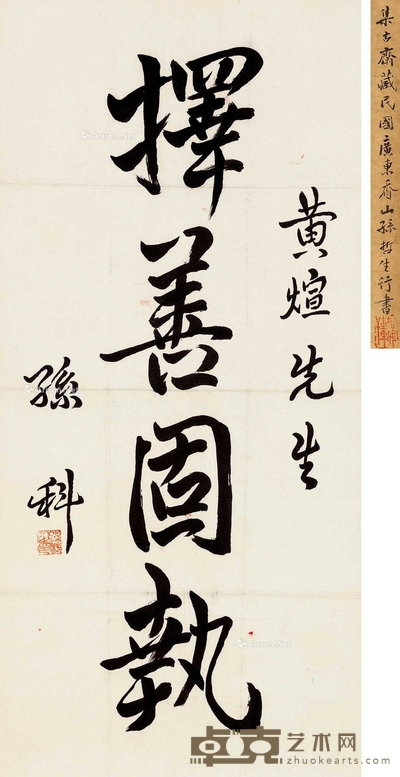 集古齋藏民國廣東香山孫哲生行書
黄煊先生
擇善固執
孫科
卓克艺术网
zhuokearts.com